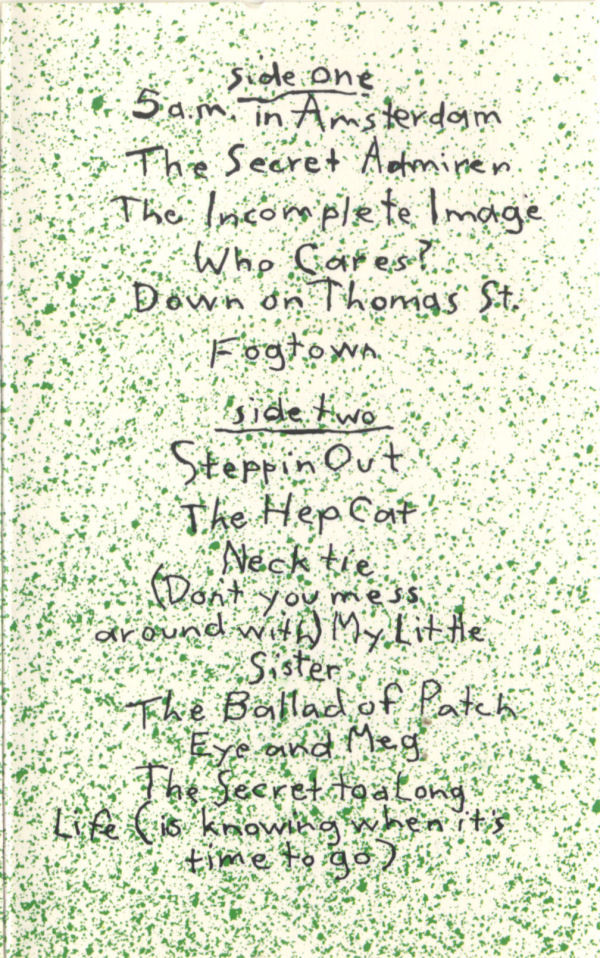 side one
5 a.m. in Amsterdam
The Secret Admirer
The Incomplete Image
Who Cares?
Down on Thomas St.
Fogtown
side two
Steppin Out
The Hep Cat
Neck tie
(Don't you mess
around with) My Little
Sister
The Ballad of Patch
Eye and Meg
The Secret to a Long
Life (is knowing when it's
time to go)